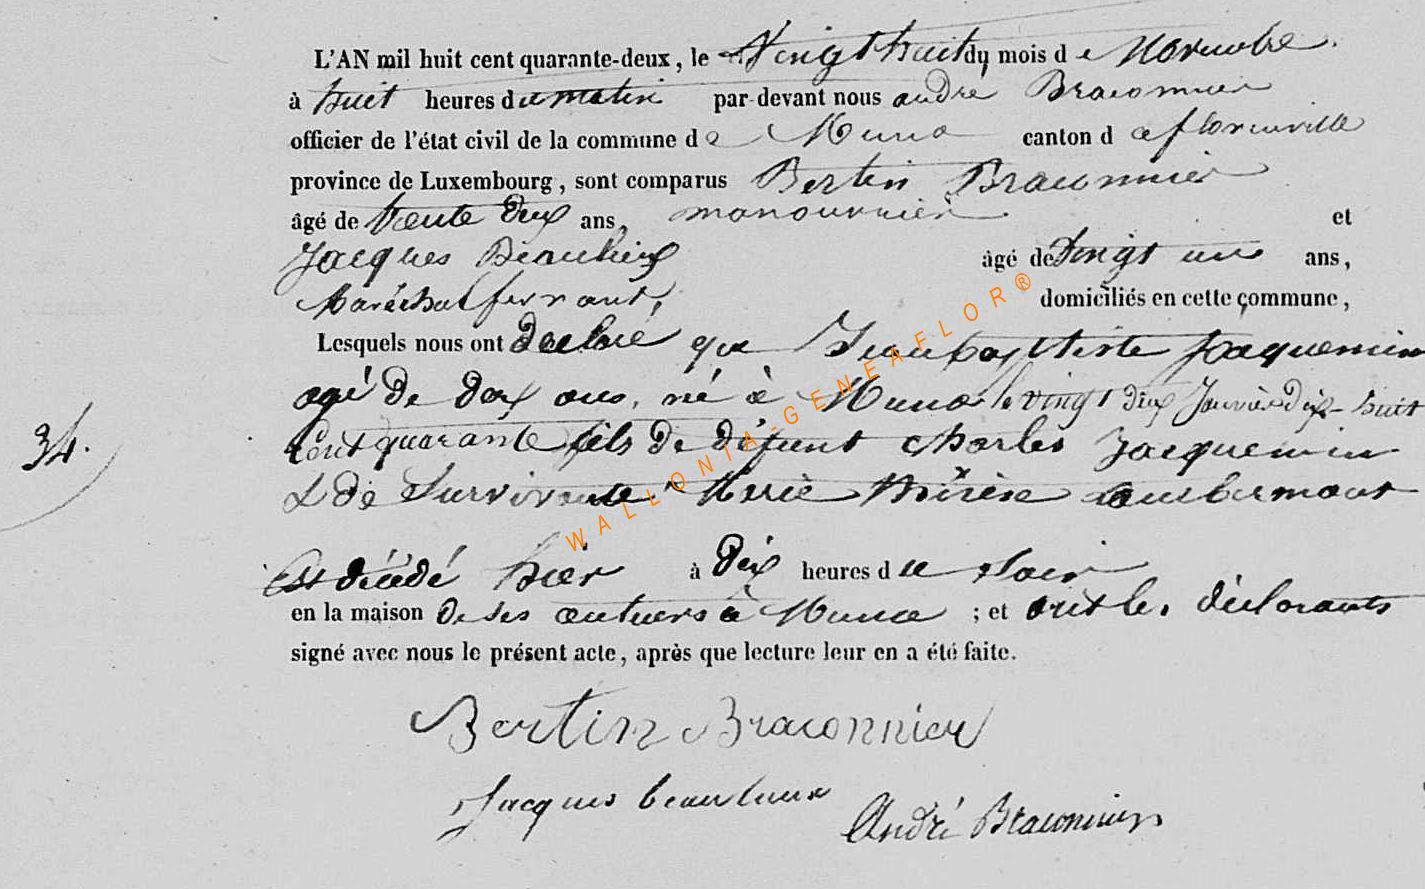 L'AN mil huit cent quarante-deux, le Vingt huit du mois de Novembre.
à huit heures du matin par-devant nous andré Braconnier
officier de l'état civil de la commune de Muno canton de florenville
province de Luxembourg, sont comparus Bertin Braconnier
âgé de trente deux ans, manouvrier et
Jacques Beaulieux âgé de Vingt un ans,
Maréchal ferrant, domiciliés en cette commune,
Lesquels nous ont declaré que Jean baptiste Jaquemin
agé de deux ans, né à Muno le vingt deux Janvier dix-huit
Cent quarante fils de défunt Charles Jacquemin
& de survivante Marie thérèse
34.
Est décédé hier à dix heures du soir
en la maison de ses à Muno ; et ont les déclarants
signé avec nous le présent acte, après que lecture leur en a été faite.
Bertin Braconnier
Jacques beaulieux
André Braconnier
WALLONIA-GENEAFLOR®